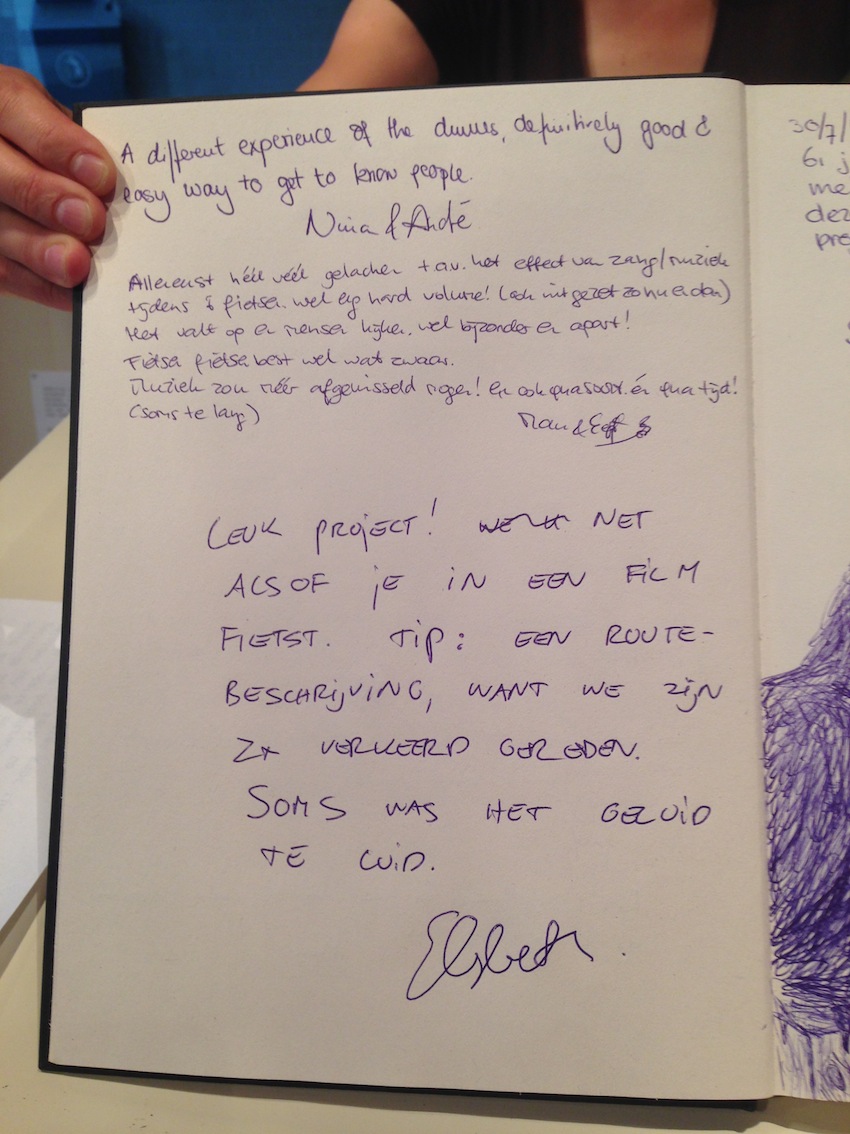 A different experience of the dunes, definitively good &
easy way to get to know people.
Nina & André
Allereerst héél véél gelachen t.a.v. het effect van zang/muziek
tijdens 't fietsen. wel erg hard volume! (ook uitgezet zo nu en dan)
Het valt op en mensen kijken, wel bijzonder en apart!
Fietsen fietsen best wel wat zwaar.
Muziek zou méér afgewisseld mogen! En ook qua soort én qua tijd!
(soms te lang)
LEUK PROJECT! NET
ALSOF JE IN EEN FILM
FIETST. TIP: EEN ROUTE-
BESCHRIJVING, WANT WE ZIJN
2x VERKEERD GEREDEN.
SOMS WAS HET GELUID
TE LUID.
Elsbeth.
30/7/
6i j
me
dez
pro